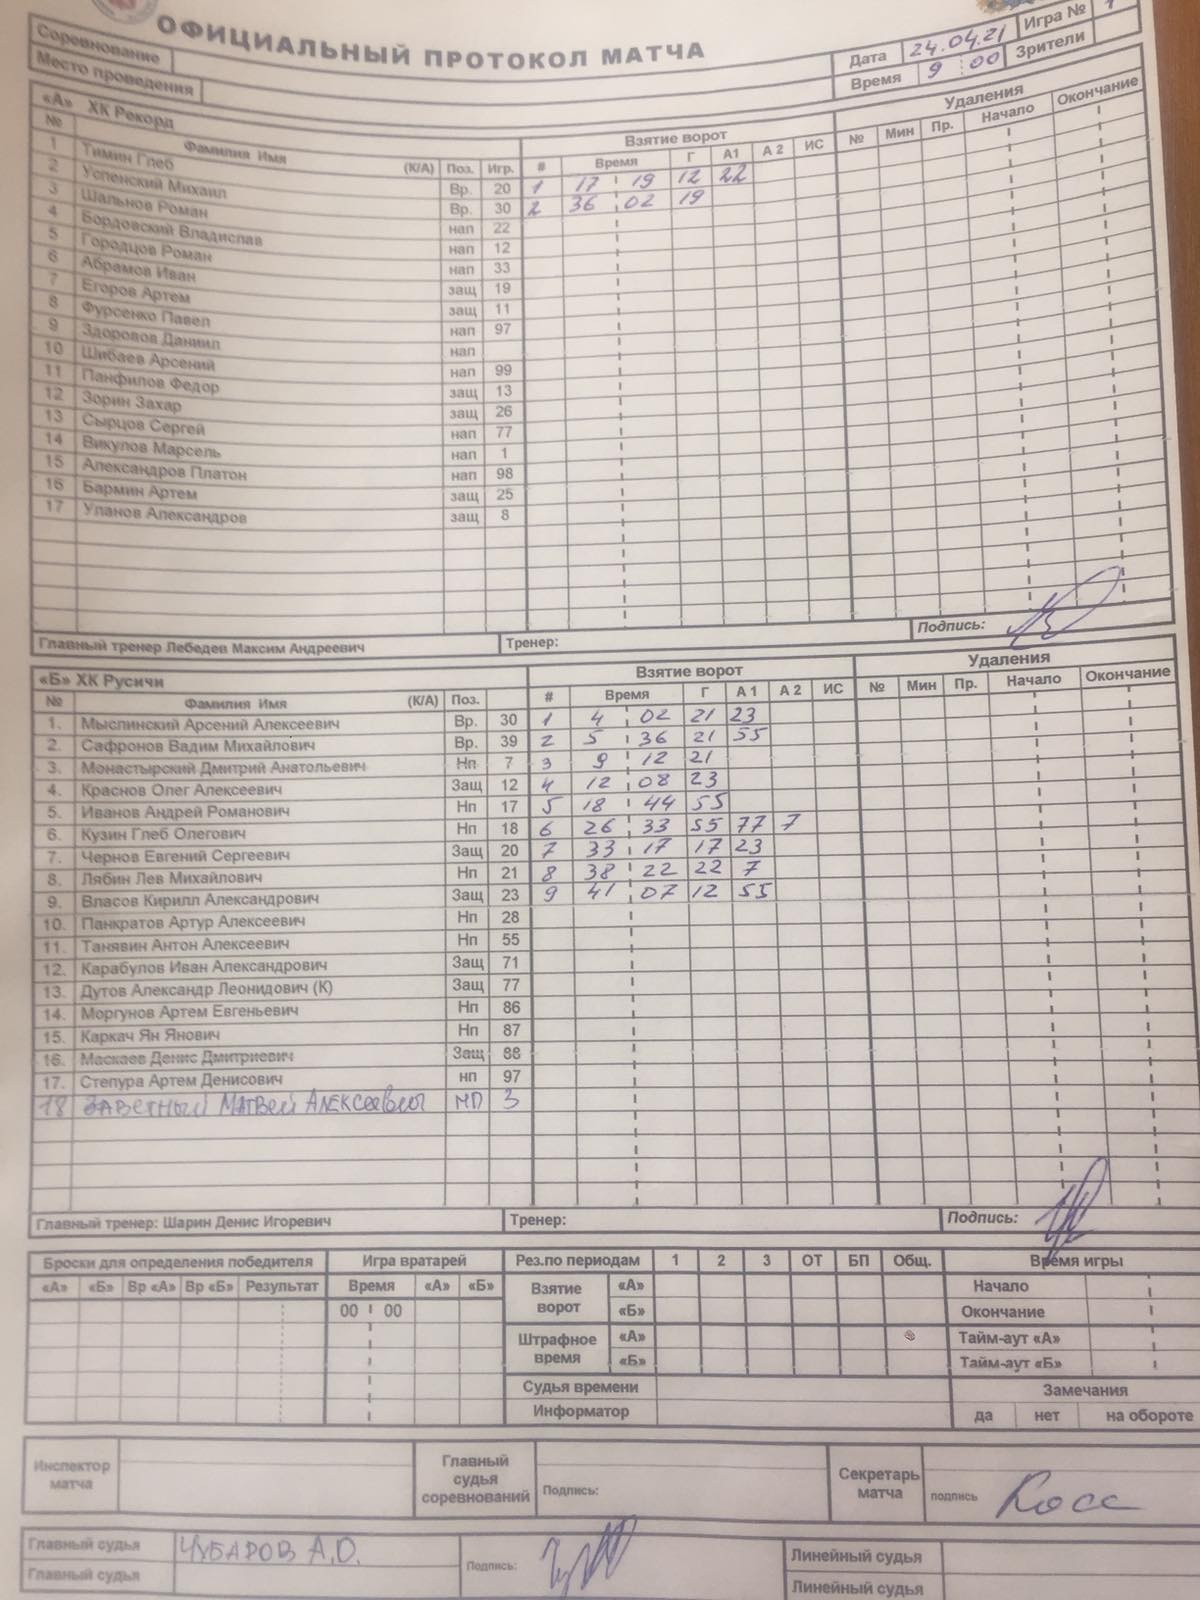 ОФИЦИАЛЬНЫЙ ПРОТОКОЛ МАТЧА
Соревнование Дата 24.04.21 Игра № 1
Место проведения Время 9 00 Зрители
«А» ХК Рекорд Взятие ворот Удаления
№ Фамилия Имя (К/А) Поз. Игр. # Время Г А1 А 2 ИС № Мин Пр. Начало Окончание
1 Тимин Глеб Вр. 20 1 17 19 12 22
2 Успенский Михаил Вр. 30 2 36 02 19
3 Шальнов Роман нап 22
4 Бордовский Владислав нап 12
5 Городцов Роман нап 33
6 Абрамов Иван защ 19
7 Егоров Артем защ 11
8 Фурсенко Павел нап 97
9 Здоровов Даниил нап
10 Шибаев Арсений нап 99
11 Панфилов Федор защ 13
12 Зорин Захар защ 26
13 Сырцов Сергей нап 77
14 Викулов Марсель нап 1
15 Александров Платон нап 98
16 Бармин Артем защ 25
17 Уланов Александров защ 8
Главный тренер Лебедев Максим Андреевич Тренер: Подпись:
«Б» ХК Русичи Взятие ворот Удаления
№ Фамилия Имя (К/А) Поз. # Время Г А 1 А 2 ИС № Мин Пр. Начало Окончание
1. Мыслинский Арсений Алексеевич Вр. 30 1 4 02 21 23
2. Сафронов Вадим Михайлович Вр. 39 2 5 36 21 55
3. Монастырский Дмитрий Анатольевич Нп 7 3 9 12 21
4. Краснов Олег Алексеевич Защ 12 4 12 08 23
5. Иванов Андрей Романович Нп 17 5 18 44 55
6. Кузин Глеб Олегович Нп 18 6 26 33 55 77 7
7. Чернов Евгений Сергеевич Защ 20 7 33 17 17 23
8. Лябин Лев Михайлович Нп 21 8 38 22 22 7
9. Власов Кирилл Александрович Защ 23 9 41 07 12 55
10. Панкратов Артур Алексеевич Нп 28
11. Танявин Антон Алексеевич Нп 55
12. Карабулов Иван Александрович Защ 71
13. Дутов Александр Леонидович (К) Защ 77
14. Моргунов Артем Евгеньевич Нп 86
15. Каркач Ян Янович Нп 87
16. Маскаев Денис Дмитриевич Защ 88
17. Степура Артем Денисович нп 97
18 Заветный Матвей Алексеевич НП 3
Главный тренер: Шарин Денис Игоревич Тренер: Подпись:
Броски для определения победителя Игра вратарей Рез.по периодам 1 2 3 ОТ БП Общ. Время игры
«А» «Б» Вр «А» Вр «Б» Результат Время «А» «Б» Взятие ворот «А» Начало
00 00 «Б» Окончание
Штрафное время «А» Тайм-аут «А»
«Б» Тайм-аут «Б»
Судья времени Замечания
Информатор да нет на обороте
Инспектор матча Главный судья соревнований Подпись: Секретарь матча подпись Косс
Главный судья Чубаров А.О. Подпись: Линейный судья
Главный судья Линейный судья